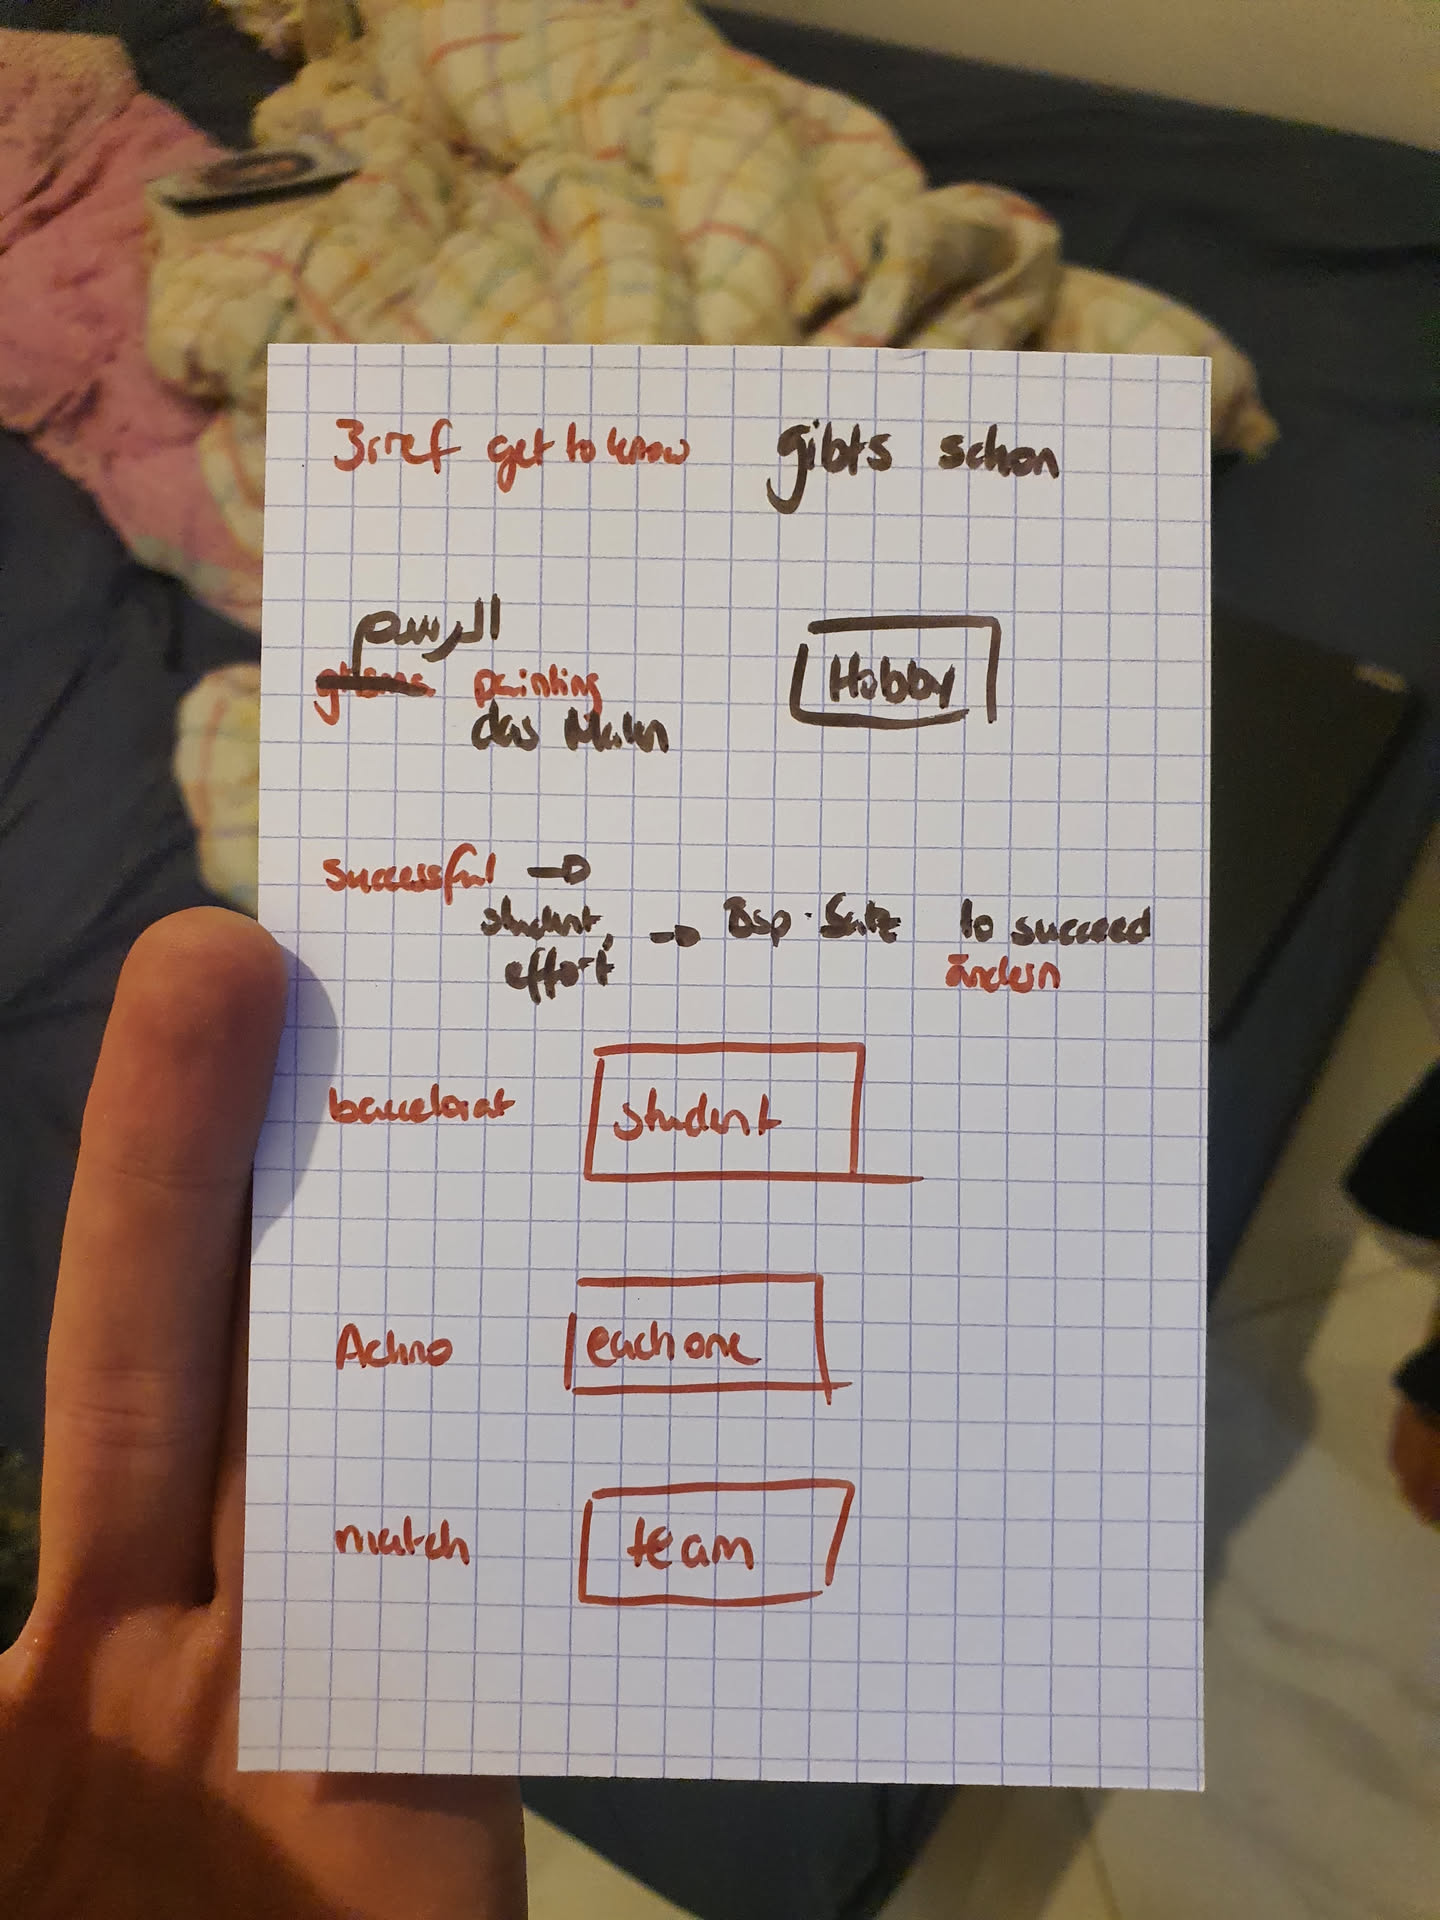 3rref get to know gibts schon
الرسم
painting Hobby
das Malen
successful →
student, → Bsp. Satz to succeed
effort ändern
baccelorat student
Achno each one
match team